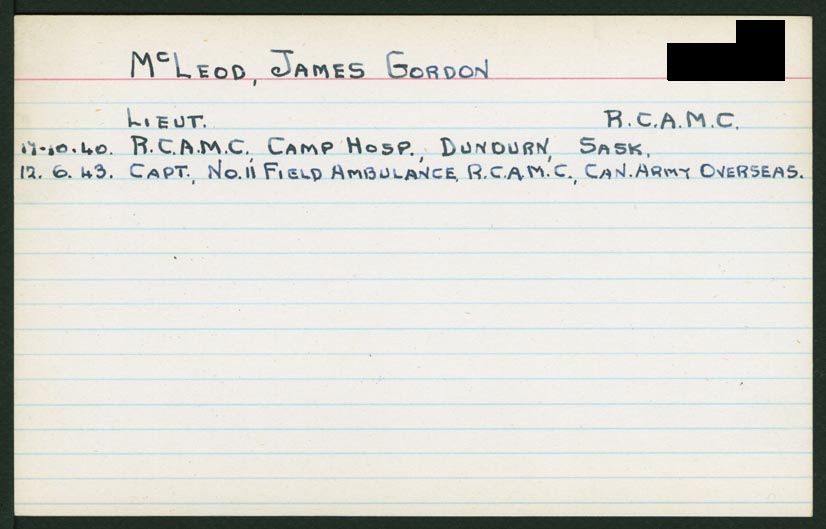 McLeod, James Gordon
Lieut. R.C.A.M.C.
17-10.40. R.C.A.M.C., Camp Hosp., Dundurn, Sask.
12. 6. 43. Capt., No. 11 Field Ambulance, R.C.A.M.C., Can. Army Overseas.